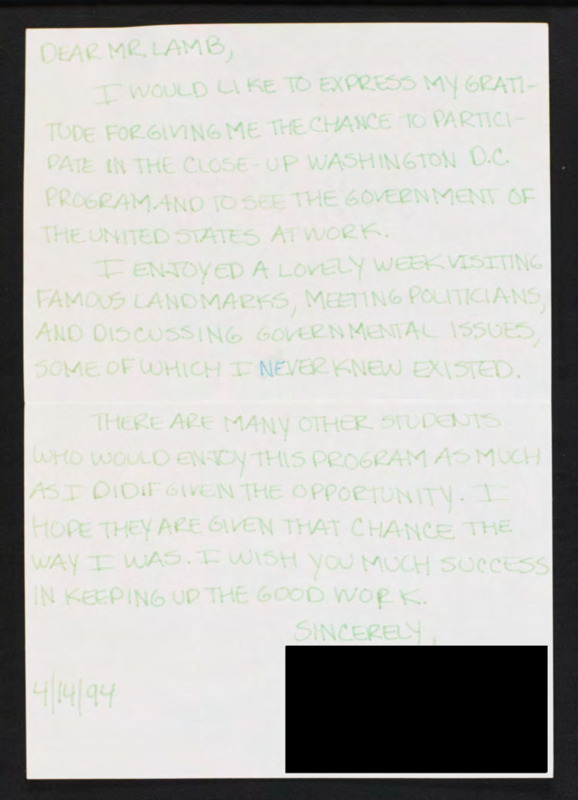 DEAR MR. LAMB,
I WOULD LIKE TO EXPRESS MY GRATI-
TUDE FOR GIVING ME THE CHANCE TO PARTICI-
PATE IN THE CLOSE-UP WASHINGTON D.C.
PROGRAM AND TO SEE THE GOVERNMENT OF
THE UNITED STATES AT WORK.
I ENJOYED A LOVELY WEEK VISITING
FAMOUS LANDMARKS, MEETING POLITICIANS,
AND DISCUSSING GOVERNMENTAL ISSUES,
SOME OF WHICH I NEVER KNEW EXISTED.
THERE ARE MANY OTHER STUDENTS
WHO WOULD ENJOY THIS PROGRAM AS MUCH
AS I DID IF GIVEN THE OPPORTUNITY. I
HOPE THEY ARE GIVEN THAT CHANCE THE
WAY I WAS. I WISH YOU MUCH SUCCESS
IN KEEPING UP THE GOOD WORK.
SINCERELY,
4/14/94